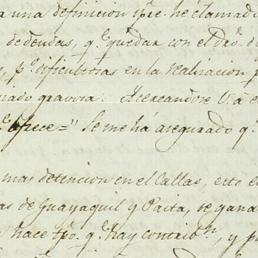 a una definicion spre. he clamado
de deudas, q.e quedar con el dro. d
y p.r dificultosas en la realizacion p
gravosa. Acercandose V. a e
ofrece = " Se me há asegurado q.e
mas detencion en el Callao, esto e
as de Guayaquil y Paita, se gana
hace tpo. q.e hay contrib.n, y p